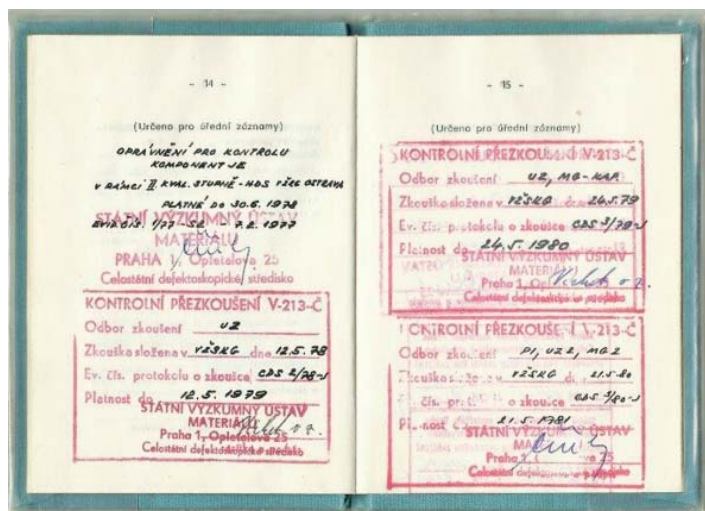 - 14 -
(Určeno pro úřední záznamy)
OPRÁVNĚNÍ PRO KONTROLU
KOMPONENT JE
V RÁMCI II. KVAL. STUPNĚ - HDS VŽKG OSTRAVA
PLATNÉ DO 30.6. 1978
EVID. ČÍS. 1/77 - 7.2. 1977
STÁTNÍ VÝZKUMNÝ ÚSTAV
MATERIÁLU
PRAHA 1, Opletalova 25
Celostátní defektoskopické středisko
KONTROLNÍ PŘEZKOUŠENÍ V-213-Č
Odbor zkoušení UZ
Zkouška složena v VŽSKG dne 12.5.78
Ev. čís. protokolu o zkoušce CDS 2/78-J
Platnost do 12.5. 1979
STÁTNÍ VÝZKUMNÝ ÚSTAV
MATERIÁLU
Praha 1, Opletalova 25
Celostátní defektoskopické středisko
- 15 -
(Určeno pro úřední záznamy)
KONTROLNÍ PŘEZKOUŠENÍ V-213-Č
Odbor zkoušení UZ, MG-KAP.
Zkouška složena v VŽSKG dne 24.5.79
Ev. čís. protokolu o zkoušce CDS 3/79-J
Platnost do 24.5. 1980
STÁTNÍ VÝZKUMNÝ ÚSTAV
MATERIÁLU
Praha 1, Opl
Celostátní defektoskopické středisko
KONTROLNÍ PŘEZKOUŠENÍ V-213-Č
Odbor zkoušení PI, UZ 2, MG 2
Zkouška složena v VŽSKG d. 21.5.80
Ev. čís. protokolu o zkoušce CDS 3/80-J
Platnost do 21.5. 1981
STÁTNÍ VÝZKUMNÝ ÚSTAV
MATERIÁLU
Praha 1 25
Celostátní defektoskopické středisko